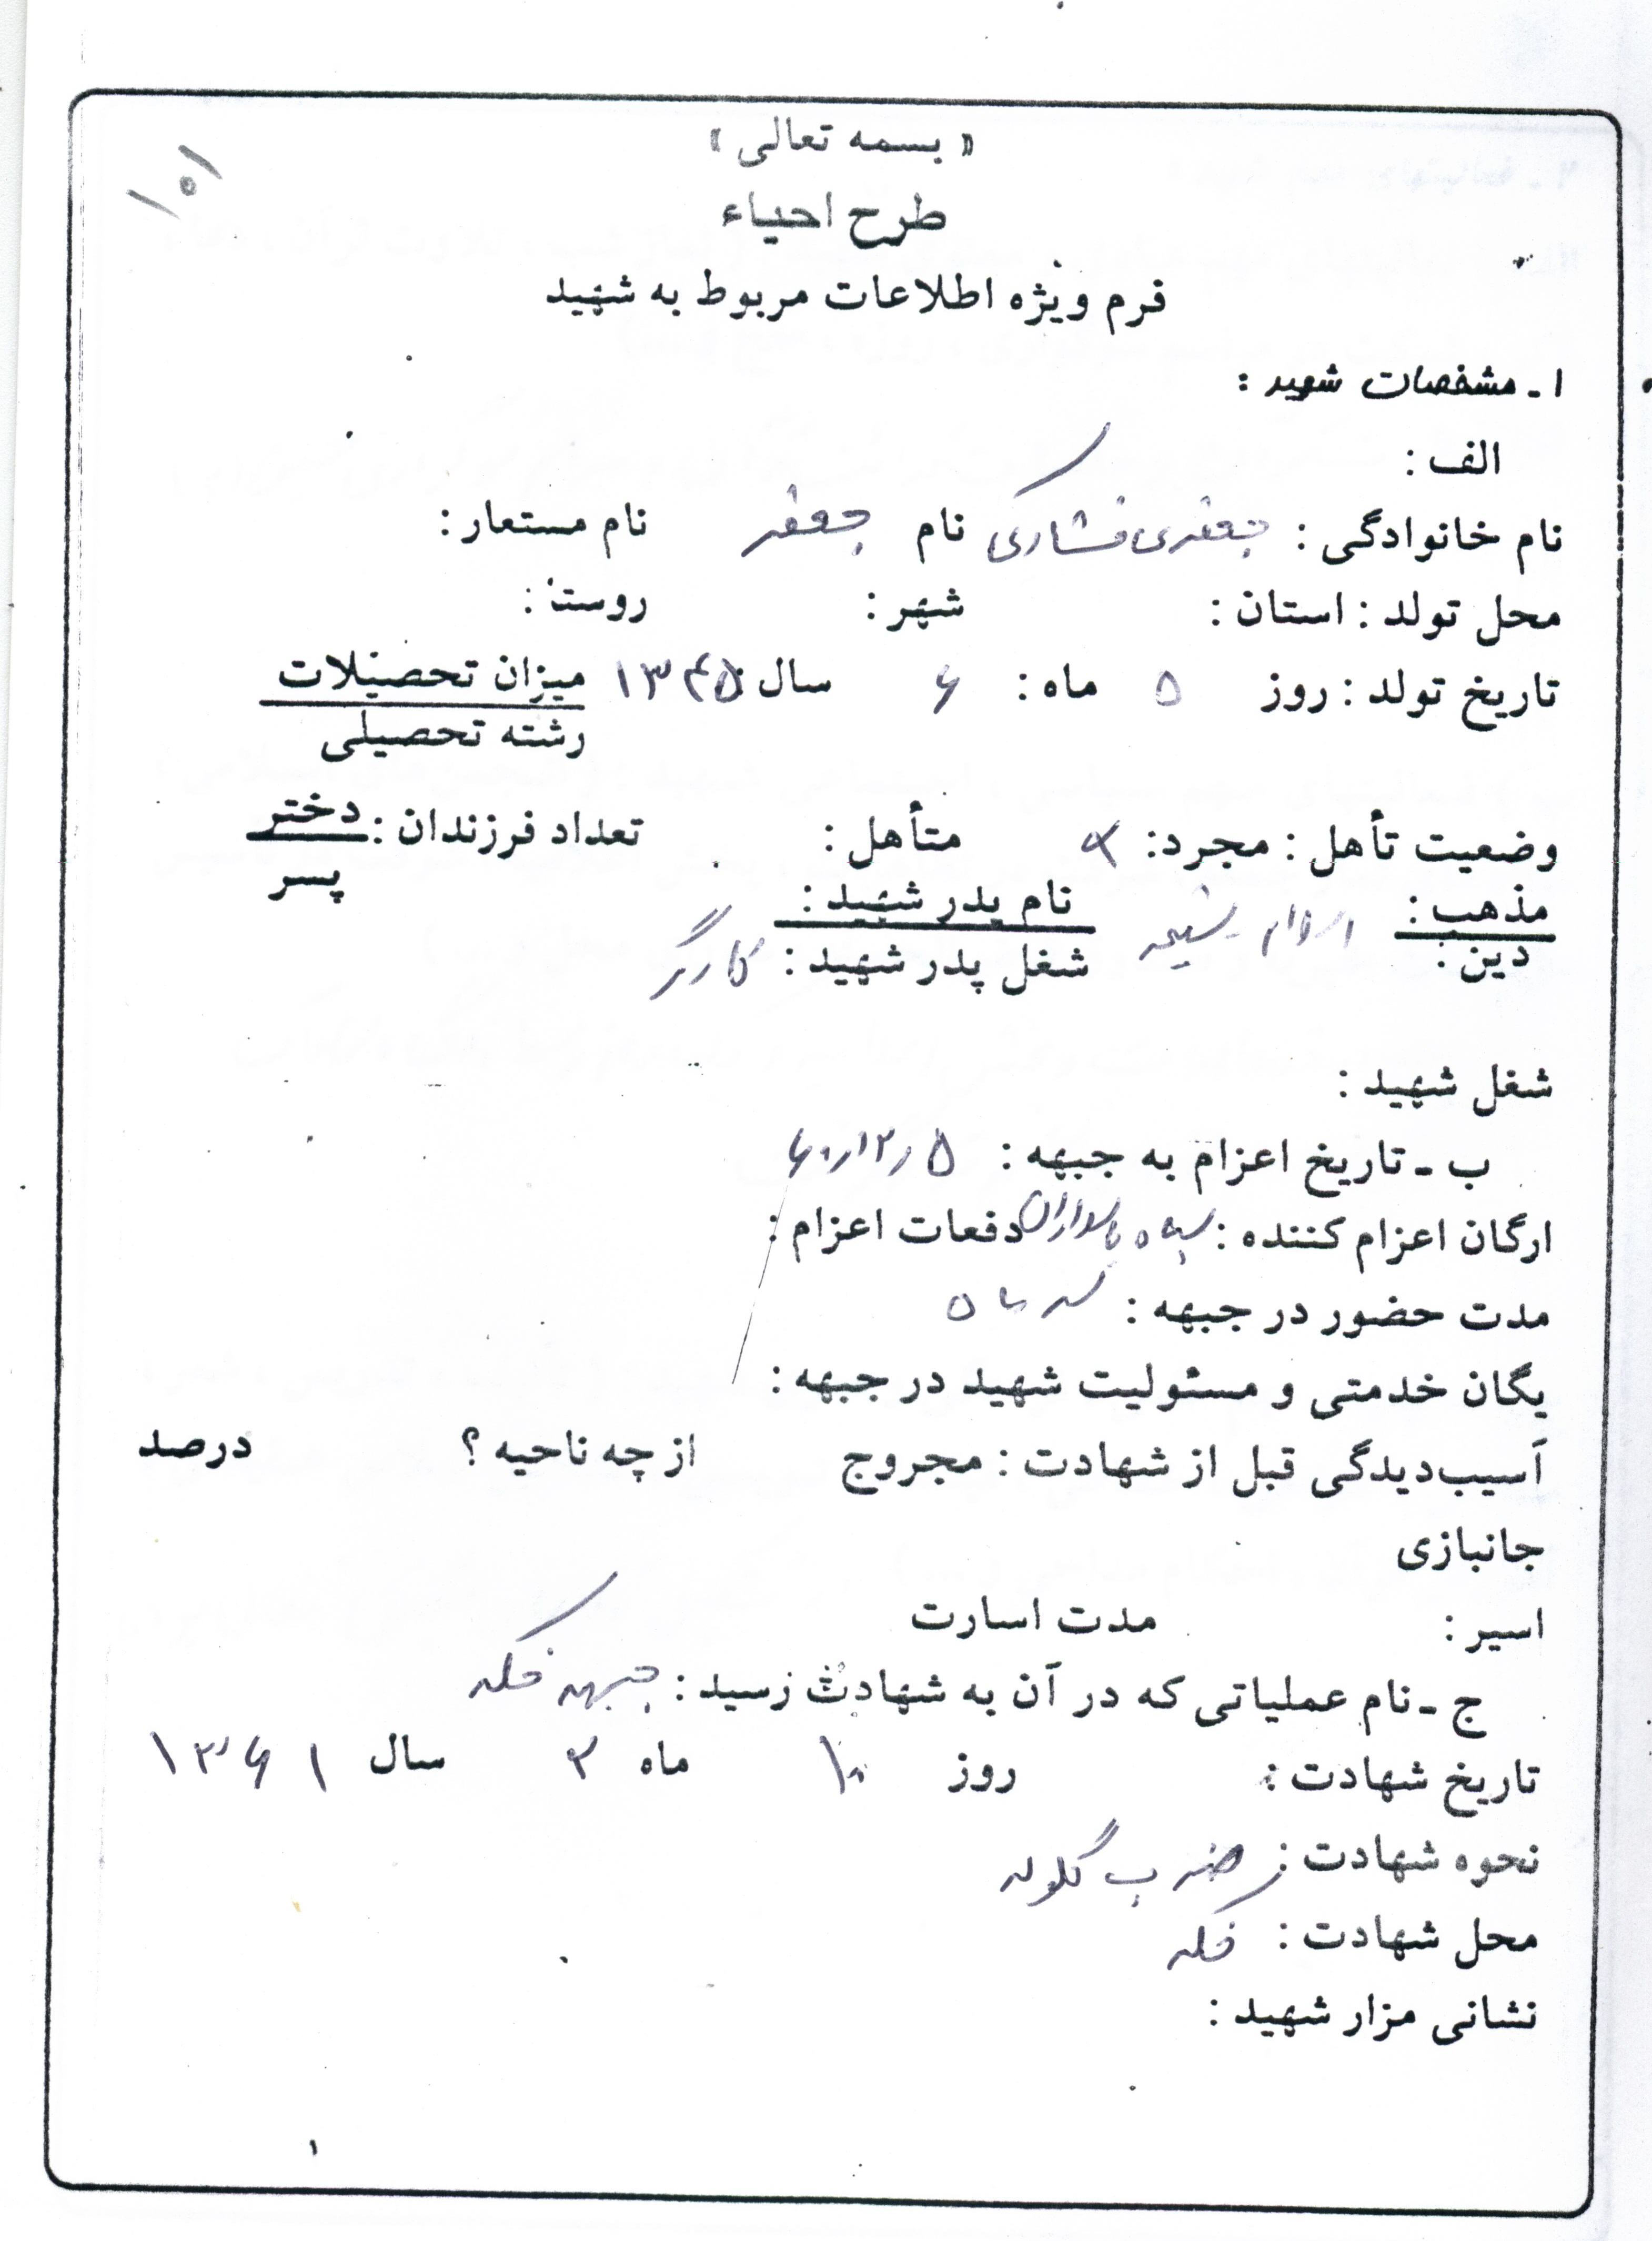 ۱۰۱
« بسمه تعالی »
طرح احیاء
فرم ویژه اطلاعات مربوط به شهید
۱ ـ مشخصات شهید :
الف :
نام خانوادگی : جعفری فشارکی نام جعفر نام مستعار :
محل تولد : استان : شهر : روستا :
تاریخ تولد : روز ۵ ماه : ۶ سال ۱۳۴۵ میزان تحصیلات
رشته تحصیلی
وضعیت تأهل : مجرد : × متأهل : تعداد فرزندان : دختر
پسر
مذهب : اسلام ـ شیعه نام پدر شهید :
دین : شغل پدر شهید : کارگر
شغل شهید :
ب ـ تاریخ اعزام به جبهه : ۵ ر ۱۲ ر ۶۰
ارگان اعزام کننده : سپاه پاسداران دفعات اعزام :
مدت حضور در جبهه : سه ماه
یگان خدمتی و مسئولیت شهید در جبهه :
آسیب‌دیدگی قبل از شهادت : مجروح از چه ناحیه ؟ درصد
جانبازی
اسیر : مدت اسارت
ج ـ نام عملیاتی که در آن به شهادت رسید : جبهه فکه
تاریخ شهادت : روز ۱۰ ماه ۲ سال ۱۳۶۱
نحوه شهادت : ضرب گلوله
محل شهادت : فکه
نشانی مزار شهید :
۱